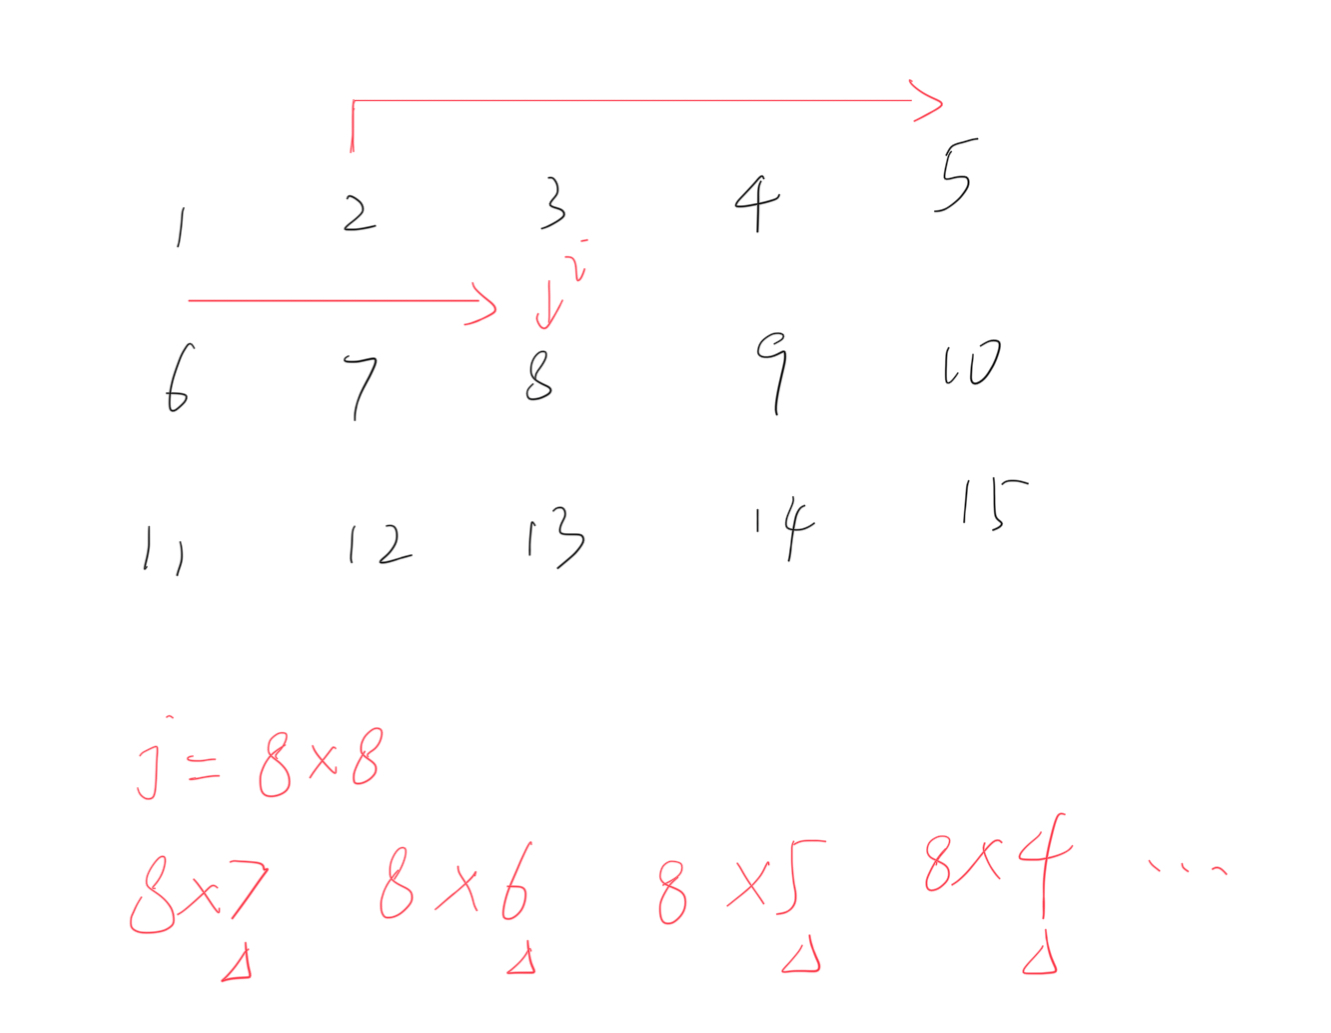 1 2 3 4 5
i
6 7 8 9 10
11 12 13 14 15
j = 8×8
8×7 8×6 8×5 8×4 ...